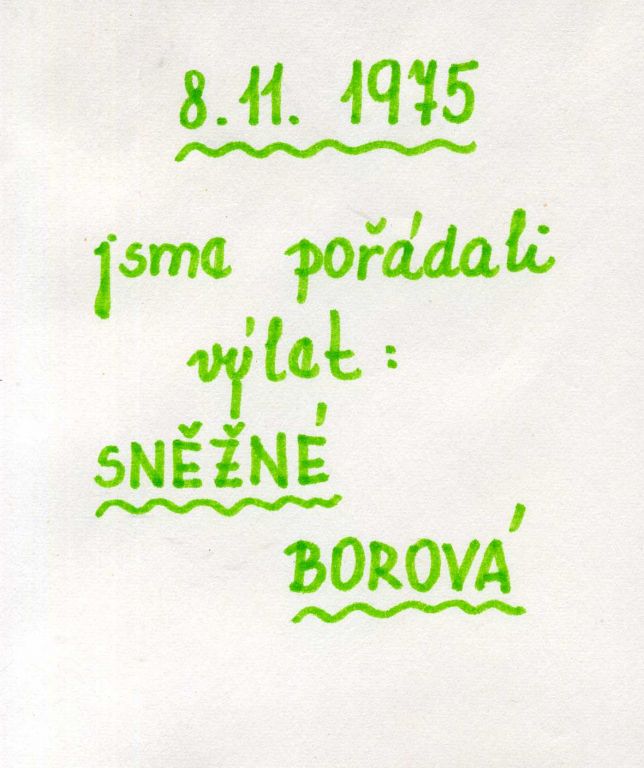 8.11. 1975
jsme pořádali
výlet:
SNĚŽNÉ
BOROVÁ